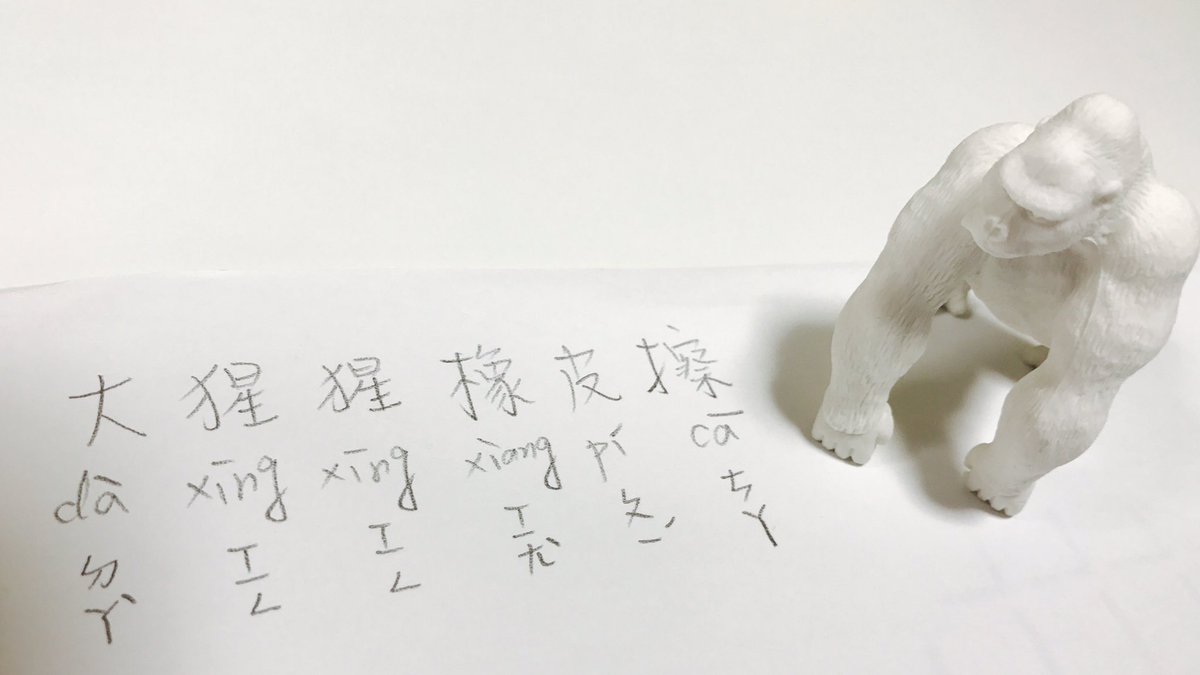 大猩猩橡皮擦
dà xīng xīng xiàng pí cā
ㄉㄚˋ ㄒㄧㄥ ㄒㄧㄥ ㄒㄧㄤˋ ㄆㄧˊ ㄘㄚ